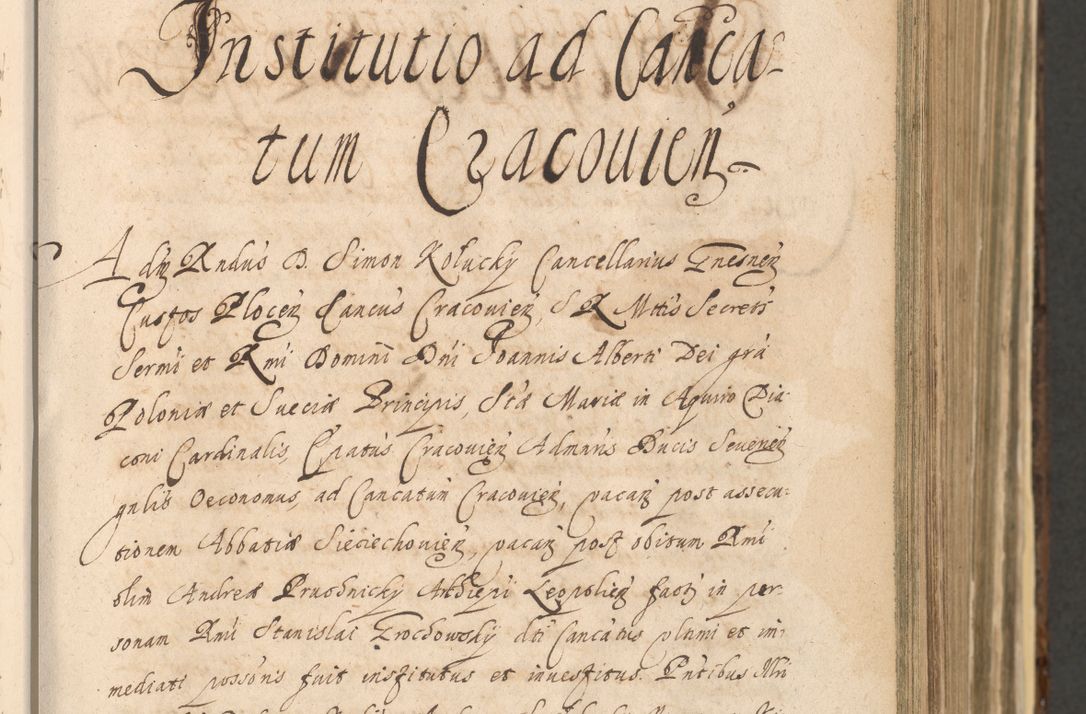 Institutio ad Canca-
tum Cracouien
Adm Rndus D. Simon Kołucky Cancellarius Gnesnen
Custos Plocen Cancus Cracouien, S R Mttis Secrets
Sermi et Rmi Domini Dni Joannis Alberti Dei gra
Poloniæ et Sueciæ Principis, Stæ Mariæ in Aquiro Dia
coni Cardinalis, Epatus Cracouien Admnris Ducis Seuerien
gnlis Oeconomus, ad Cancatum Cracouien, vacan post assecu:
tionem Abbatiæ Sieciechouien, vacan post obitum Rmi
olim Andreæ Pruchnicky Archiepi Leopolien factz in per
sonam Rmi Stanislai Grochowsky dti Cancatus vltimi et im
mediati possoris fuit institutus et inuestitus. Pntibus Illri